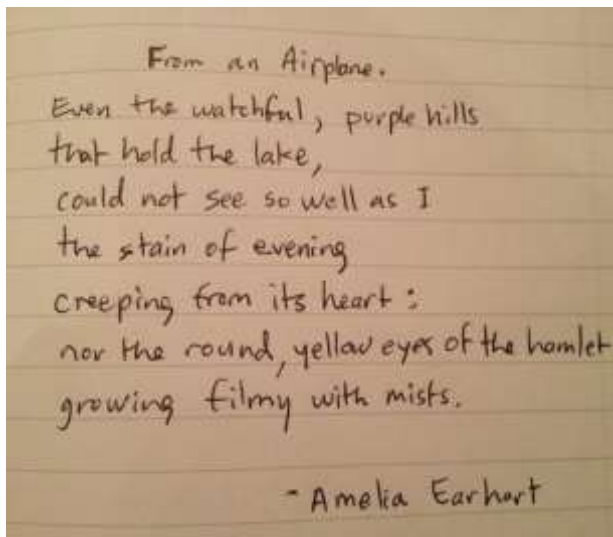 From an Airplane.
Even the watchful, purple hills
that hold the lake,
could not see so well as I
the stain of evening
creeping from its heart:
nor the round, yellow eyes of the hamlet
growing filmy with mists.
- Amelia Earhart